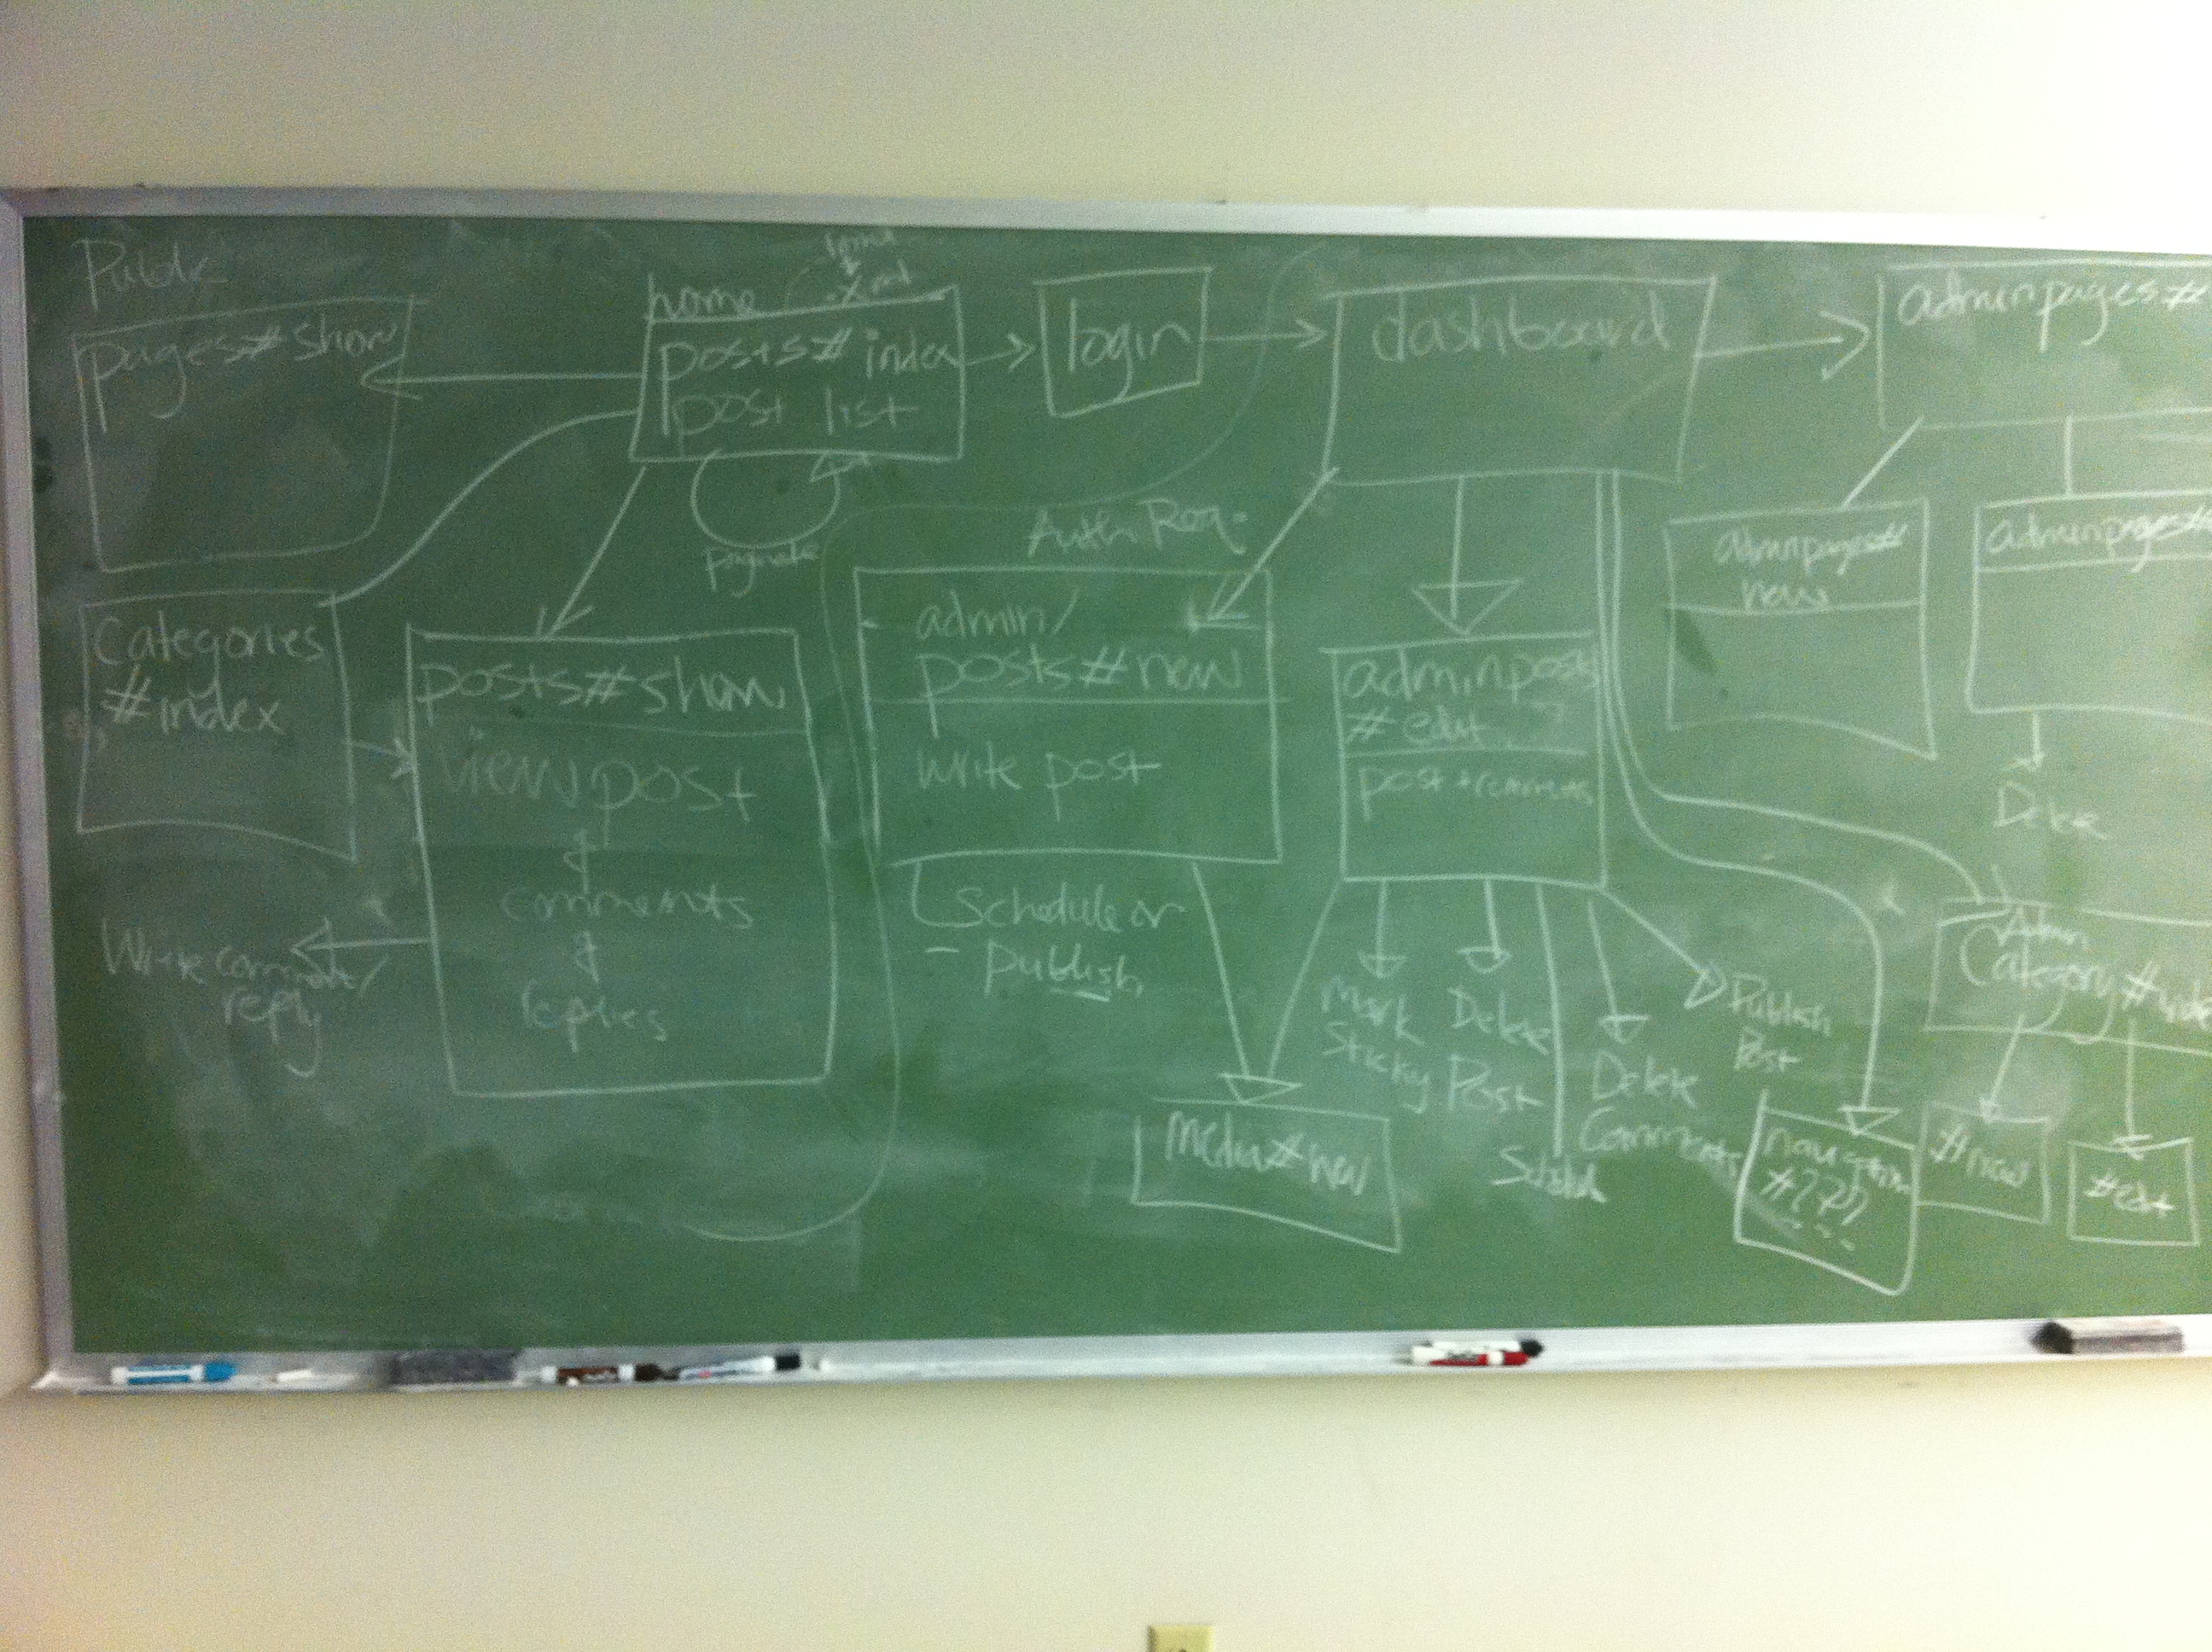 Public
pages#show
home
posts#index
post list
paginate
login
dashboard
adminpages#
Auth Req.
Categories
#index
posts#show
view post
comments
replies
Write comment/
reply
admin/
posts#new
write post
Schedule or
publish
adminposts
#edit
post + comments
Mark
Sticky
Delete
Post
Delete
Comments
Publish
Post
media#new
adminpages#
new
adminpages#
Delete
Admin
Category#index
navigation
#???
#new
#edit